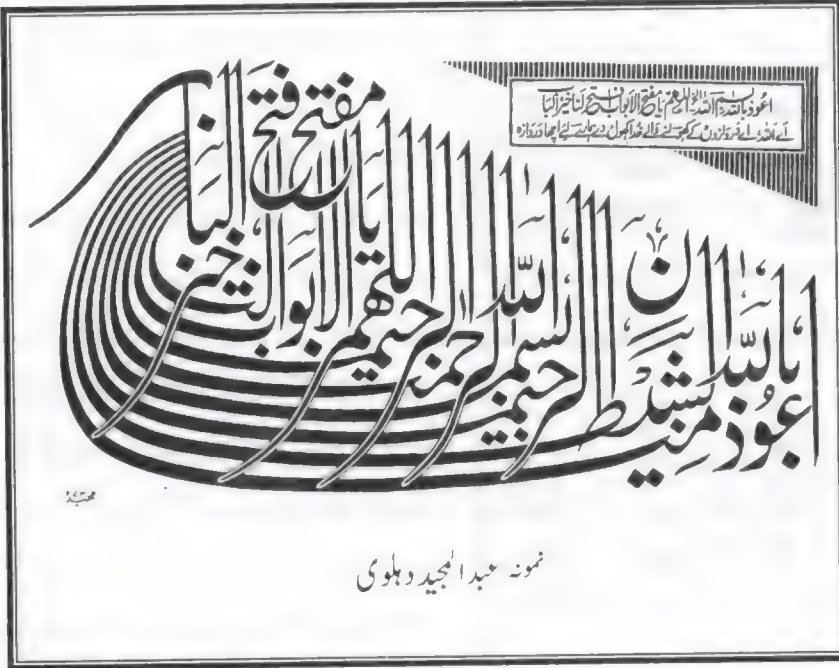 اعوذ باللہ بسم اللہ اللہم یا مفتح الابواب افتح لنا خیر الباب
اے اللہ اے دروازوں کے کھولنے والے خدا کھول دے ہمارے لیے اچھا دروازہ
اعوذ بالله من الشيطن الرجيم بسم الله الرحمن الرحيم اللهم يا مفتح الابواب افتح لنا خير الباب
نمونہ عبدالمجید دہلوی